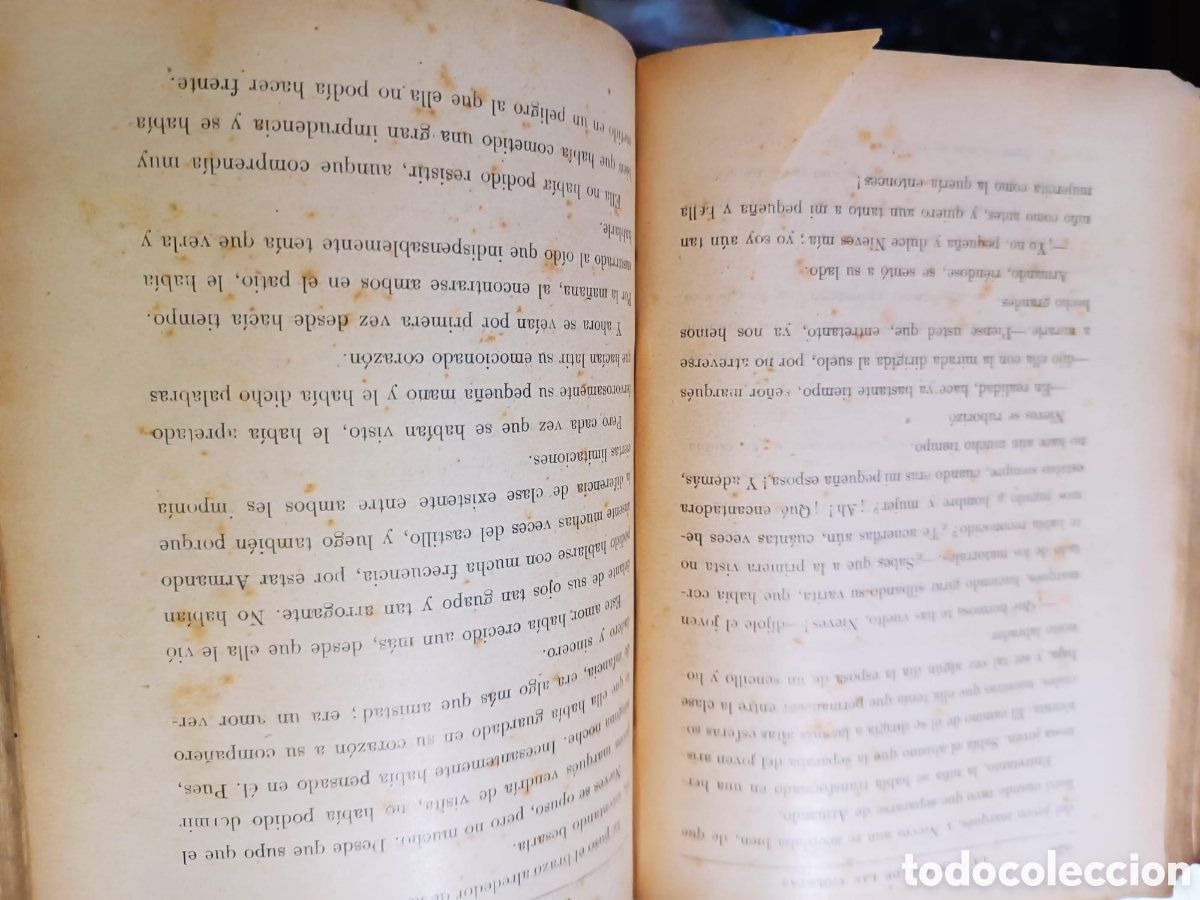 DE LAS VIOLETAS
del joven marqués, y Nieves aun se acordaba bien, de que
lloró cuando tuvo que separarse de Armando.
Entretanto, la niña se había transformado en una her-
mosa joven. Sabía el abismo que la separaba del joven aris-
tócrata. El camino de él se dirigía a las más altas esferas so-
ciales, mientras que ella tenía que permanecer entre la clase
baja, y ser tal vez algún día la esposa de un sencillo y ho
nesto labrador
—¡Qué hermosa te has vuelto, Nieves! —díjole el joven
marqués, haciendo girar silbando su varita, que había cor-
tado de los matorrales—. ¿Sabes que a la primera vista no
te había reconocido? ¿Te acuerdas aún, cuántas veces he-
mos jugado a hombre y mujer? ¡Ah! ¡Qué encantadora
estabas siempre, cuando eras mi pequeña esposa! Y además,
no hace aún mucho tiempo.
Nieves se ruborizó
—En realidad, hace ya bastante tiempo, señor marqués
—dijo ella con la mirada dirigida al suelo, por no atreverse
a mirarle —Piense usted que, entretanto, ya nos hemos
hecho grandes.
Armando, riéndose, se sentó a su lado:
—¡Yo no, pequeña y dulce Nieves mía; yo soy aún tan
niño como antes, y quiero aun tanto a mi pequeña y bella
mujercita como la quería entonces!
puso el brazo alrededor de
intentando besarla.
Nieves se opuso, pero no mucho. Desde que supo que el
joven marqués vendría de visita, no había podido dormir
ninguna noche. Incesantemente había pensado en él. Pues,
lo que ella había guardado en su corazón a su compañero
de infancia, era algo más que amistad; era un amor ver-
dadero y sincero.
Este amor había crecido aun más, desde que ella le vió
delante de sus ojos tan guapo y tan arrogante. No habían
podido hablarse con mucha frecuencia, por estar Armando
ausente muchas veces del castillo, y luego también porque
la diferencia de clase existente entre ambos les imponía
ciertas limitaciones.
Pero cada vez que se habían visto, le había apretado
fervorosamente su pequeña mano y le había dicho palabras
que hacían latir su emocionado corazón.
Y ahora se veían por primera vez desde hacía tiempo.
Por la mañana, al encontrarse ambos en el patio, le había
susurrado al oído que indispensablemente tenía que verla y
hablarle.
Ella no había podido resistir, aunque comprendía muy
bien que había cometido una gran imprudencia y se había
metido en un peligro al que ella no podía hacer frente.
todocoleccion